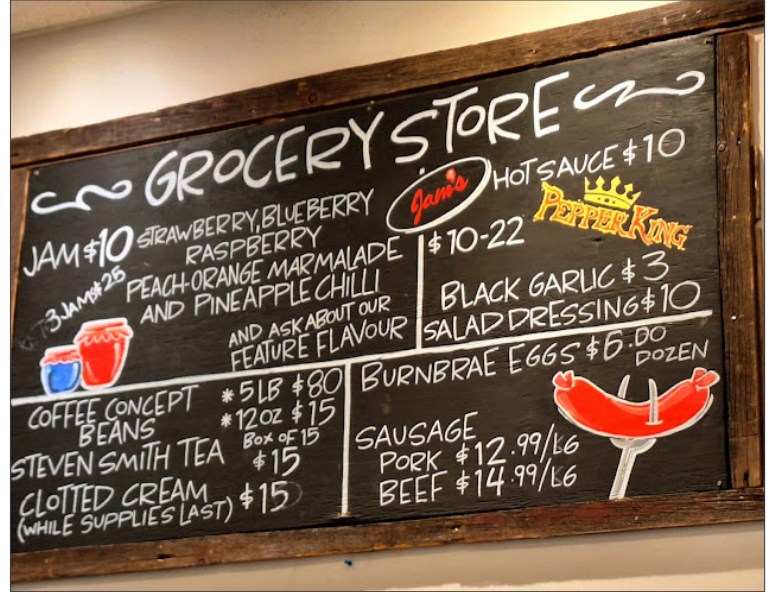 GROCERY STORE
JAM $10 STRAWBERRY, BLUEBERRY
RASPBERRY
3 JAMS $25
PEACH-ORANGE MARMALADE
AND PINEAPPLE CHILLI
AND ASK ABOUT OUR
FEATURE FLAVOUR
Jam's HOT SAUCE $10
PEPPER KING
$10-22
BLACK GARLIC $3
SALAD DRESSING $10
COFFEE CONCEPT
BEANS
* 5LB $80
* 12OZ $15
STEVEN SMITH TEA
BOX OF 15
$15
CLOTTED CREAM $15
(WHILE SUPPLIES LAST)
BURNBRAE EGGS $6.00
DOZEN
SAUSAGE
PORK $12.99/LG
BEEF $14.99/LG